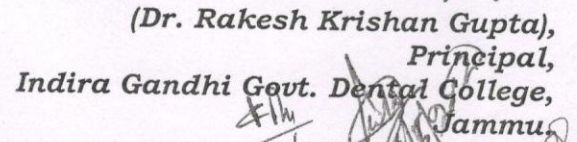 (Dr. Rakesh Krishan Gupta),
Principal,
Indira Gandhi Govt. Dental College,
Jammu.